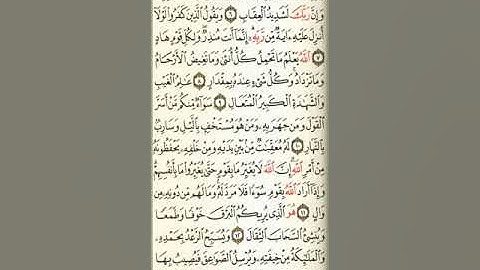 وَإِنَّ رَبَّكَ لَشَدِيدُ ٱلْعِقَابِ ٦ وَيَقُولُ ٱلَّذِينَ كَفَرُوا۟ لَوْلَآ
أُنزِلَ عَلَيْهِ ءَايَةٌ مِّن رَّبِّهِۦٓ إِنَّمَآ أَنتَ مُنذِرٌ وَلِكُلِّ قَوْمٍ هَادٍ
٧ ٱللَّهُ يَعْلَمُ مَا تَحْمِلُ كُلُّ أُنثَىٰ وَمَا تَغِيضُ ٱلْأَرْحَامُ
وَمَا تَزْدَادُ وَكُلُّ شَىْءٍ عِندَهُۥ بِمِقْدَارٍ ٨ عَٰلِمُ ٱلْغَيْبِ
وَٱلشَّهَٰدَةِ ٱلْكَبِيرُ ٱلْمُتَعَالِ ٩ سَوَآءٌ مِّنكُم مَّنْ أَسَرَّ
ٱلْقَوْلَ وَمَن جَهَرَ بِهِۦ وَمَنْ هُوَ مُسْتَخْفٍۭ بِٱلَّيْلِ وَسَارِبٌۢ
بِٱلنَّهَارِ ١٠ لَهُۥ مُعَقِّبَٰتٌ مِّنۢ بَيْنِ يَدَيْهِ وَمِنْ خَلْفِهِۦ يَحْفَظُونَهُۥ
مِنْ أَمْرِ ٱللَّهِ إِنَّ ٱللَّهَ لَا يُغَيِّرُ مَا بِقَوْمٍ حَتَّىٰ يُغَيِّرُوا۟ مَا بِأَنفُسِهِمْ
وَإِذَآ أَرَادَ ٱللَّهُ بِقَوْمٍ سُوٓءًا فَلَا مَرَدَّ لَهُۥ وَمَا لَهُم مِّن دُونِهِۦ مِن
وَالٍ ١١ هُوَ ٱلَّذِى يُرِيكُمُ ٱلْبَرْقَ خَوْفًا وَطَمَعًا
وَيُنشِئُ ٱلسَّحَابَ ٱلثِّقَالَ ١٢ وَيُسَبِّحُ ٱلرَّعْدُ بِحَمْدِهِۦ
وَٱلْمَلَٰٓئِكَةُ مِنْ خِيفَتِهِۦ وَيُرْسِلُ ٱلصَّوَٰعِقَ فَيُصِيبُ بِهَا